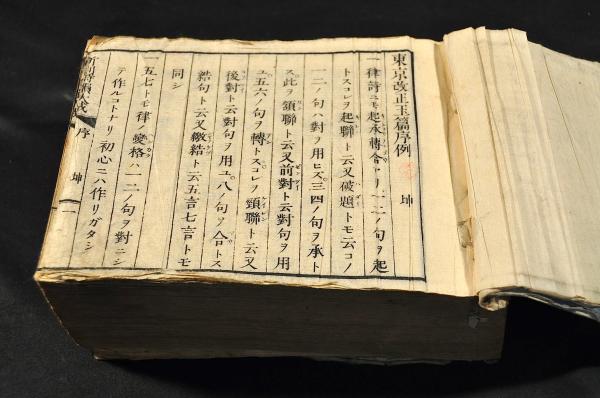 東京改正玉篇序例 坤
一律詩ニモ起承轉合アリ一二ノ句ヲ起
トスコレヲ起聯ト云又破題トモ云コノ
一二ノ句ハ對ヲ用ヒズ三四ノ句ヲ承ト
ス此ヲ頷聯ト云又前對ト云對句ヲ用
ユ五六ノ句ヲ轉トスコレヲ頸聯ト云又
後對ト云對句ヲ用ユ八ノ句ヲ合トス
結句ト云又繳結ト云五言七言トモ
同シ
一五七トモ律ノ變格ハ一二ノ句ヲ對ニシ
テ作ルコトナリ初心ニハ作リガタシ
序 坤 一